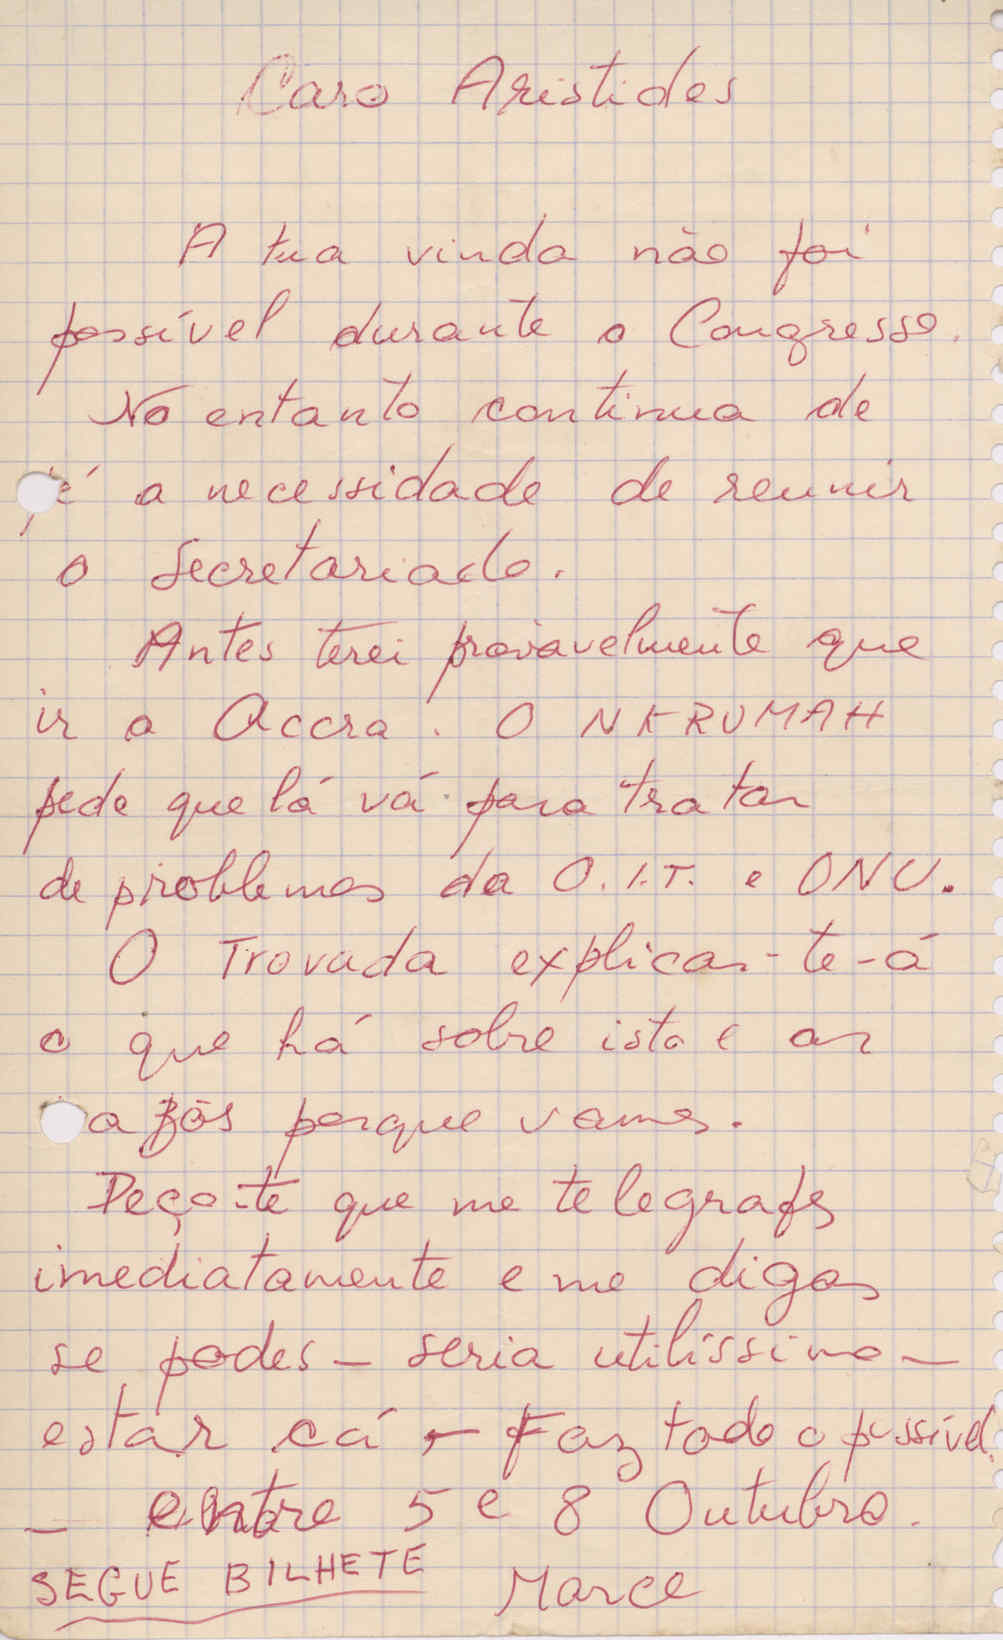 Caro Aristides
A tua vinda não foi
possível durante o Congresso.
No entanto continua de
pé a necessidade de reunir
o Secretariado.
Antes terei provavelmente que
ir a Accra. O NKRUMAH
pede que lá vá para tratar
de problemas da O.I.T. e ONU.
O Trovoada explicar-te-á
o que há sobre isto e as
razões porque vamos.
Peço-te que me telegrafes
imediatamente e me digas
se podes – seria utilíssimo –
estar cá – Faz todo o possível.
– entre 5 e 8 Outubro.
SEGUE BILHETE Marce